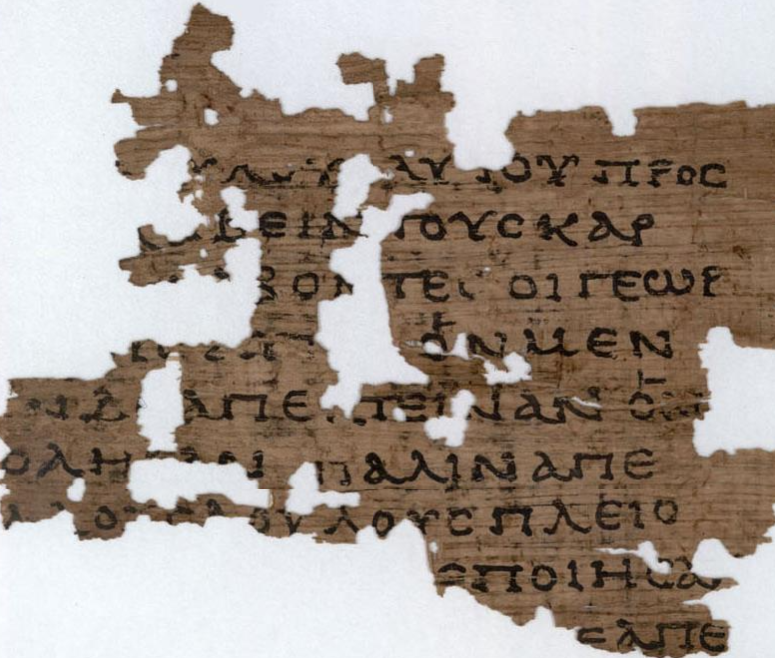 ΑΥΤΟΥ ΠΡΟϹ
ΒΕΙΝ ΤΟΥϹ ΚΑΡ
ΒΟΝΤΕϹ ΟΙ ΓΕΩΡ
ΟΝ ΜΕΝ
ΑΠΕΚΤΕΙΝΑΝ ΟΝ
ΟΛΗϹΑΝ ΠΑΛΙΝ ΑΠΕ
ΔΟΥΛΟΥϹ ΠΛΕΙΟ
ΕΠΟΙΗϹΑ
Ε ΑΠΕ